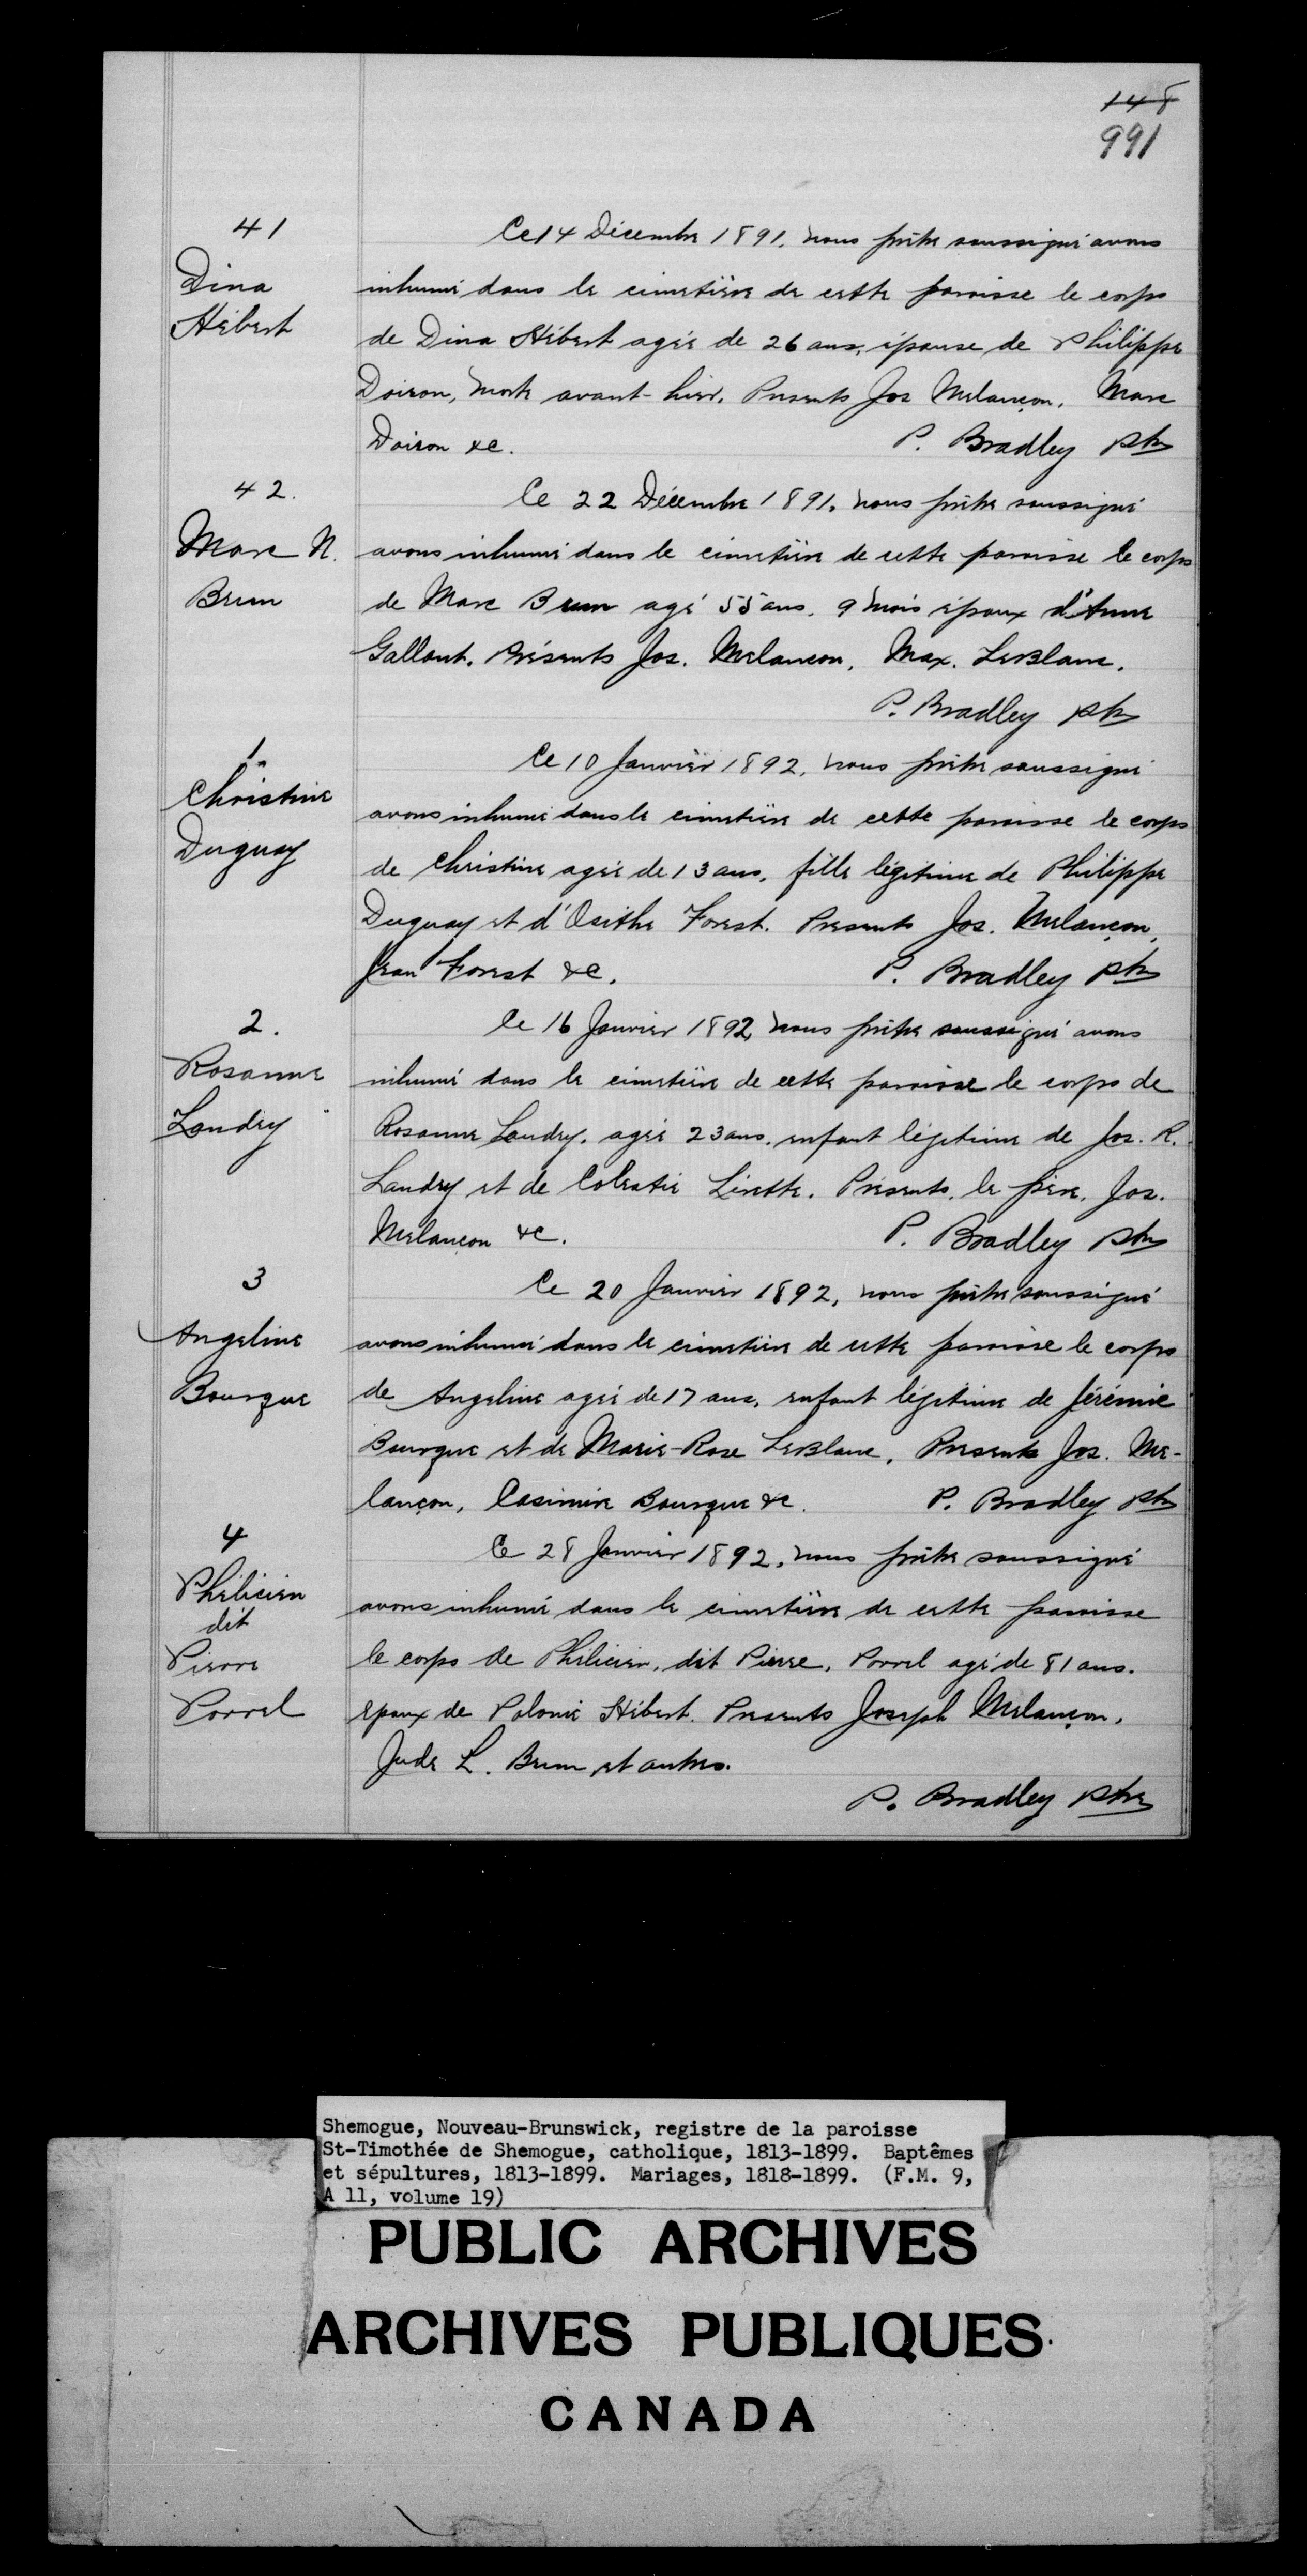 148
991
41
Dina
Hébert
Ce 14 Décembre 1891, nous prêtre soussigné avons
inhumé dans le cimetière de cette paroisse le corps
de Dina Hébert agée de 26 ans, épouse de Philippe
Doiron, morte avant-hier. Presents Jos Melançon, Marc
Doiron &c. P. Bradley ptre
42.
Marc N.
Brun
Ce 22 Décembre 1891, nous prêtre soussigné
avons inhumé dans le cimetière de cette paroisse le corps
de Marc Brun agé 55 ans, 9 mois époux d'Anne
Gallant. Présents Jos. Melancon, Max. LeBlanc.
P. Bradley ptre
1.
Christine
Duguay
Ce 10 Janvier 1892, nous prêtre soussigné
avons inhumé dans le cimetière de cette paroisse le corps
de Christine agée de 13 ans, fille légitime de Philippe
Duguay et d'Osithe Forest. Presents Jos. Melançon,
Jean Forest &c. P. Bradley ptre
2.
Rosanne
Landry
Ce 16 Janvier 1892, nous prêtre soussigné avons
inhumé dans le cimetière de cette paroisse le corps de
Rosanne Landry, agée 23 ans, enfant légitime de Jos. R.
Landry et de Colastie Lirette. Présents, le père, Jos.
Melançon &c. P. Bradley ptre
3
Angeline
Bourque
Ce 20 Janvier 1892, nous prêtre soussigné
avons inhumé dans le cimetière de cette paroisse le corps
de Angeline agée de 17 ans, enfant légitime de Jérémie
Bourque et de Marie-Rose LeBlanc, Presents Jos. Me-
lançon, Casimire Bourque &c. P. Bradley ptre
4
Philicien
dit
Pierre
Porrel
Ce 28 Janvier 1892, nous prêtre soussigné
avons inhumé dans le cimetière de cette paroisse
le corps de Philicien, dit Pierre, Porrel agé de 81 ans.
epoux de Polonie Hébert. Presents Joseph Melançon,
Jude L. Brun et autres.
P. Bradley ptre
Shemogue, Nouveau-Brunswick, registre de la paroisse
St-Timothée de Shemogue, catholique, 1813-1899. Baptêmes
et sépultures, 1813-1899. Mariages, 1818-1899. (F.M. 9,
A 11, volume 19)
PUBLIC ARCHIVES
ARCHIVES PUBLIQUES
CANADA